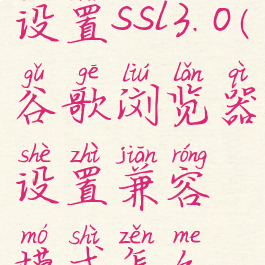 设置ssl3.0(
gǔ gē liú lǎn qì
谷歌浏览器
shè zhì jiān róng
设置兼容
mó shì zěn me
模式怎么